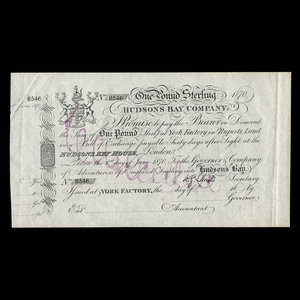 8546 No 8546 One Pound Sterling 1870
HUDSONS BAY COMPANY.
Promise to pay the Bearer on Demand
the Sum of One Pound Sterlg at York Factory in Rupert's Land
in a Bill of Exchange payable Sixty days after Sight at the
HUDSONS BAY HOUSE, London.
day of 1870. For the Governor & Company
of Adventurers of England trading into Hudsons Bay.
No 8546 Secretary
Issued at YORK FACTORY, the day of 18 by
Governor
Entd. Accountant